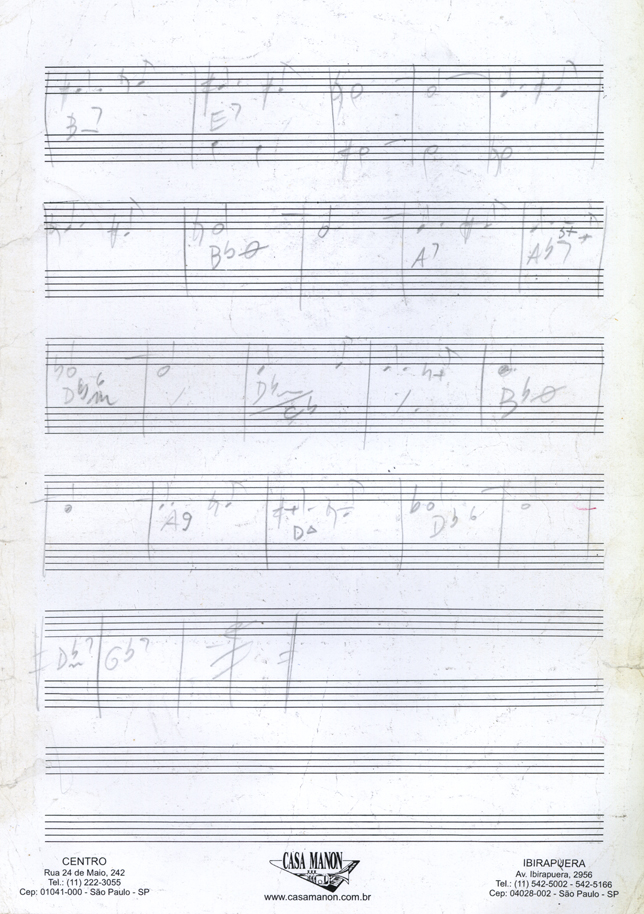 B-7 E7
BbØ A7 Ab7
Db6m Db- Cb BbØ
A9 D△ Db6
Dbm7 Gb7
CENTRO
Rua 24 de Maio, 242
Tel.: (11) 222-3055
Cep: 01041-000 - São Paulo - SP
CASA MANON
www.casamanon.com.br
IBIRAPUERA
Av. Ibirapuera, 2956
Tel.: (11) 542-5002 - 542-5166
Cep: 04028-002 - São Paulo - SP